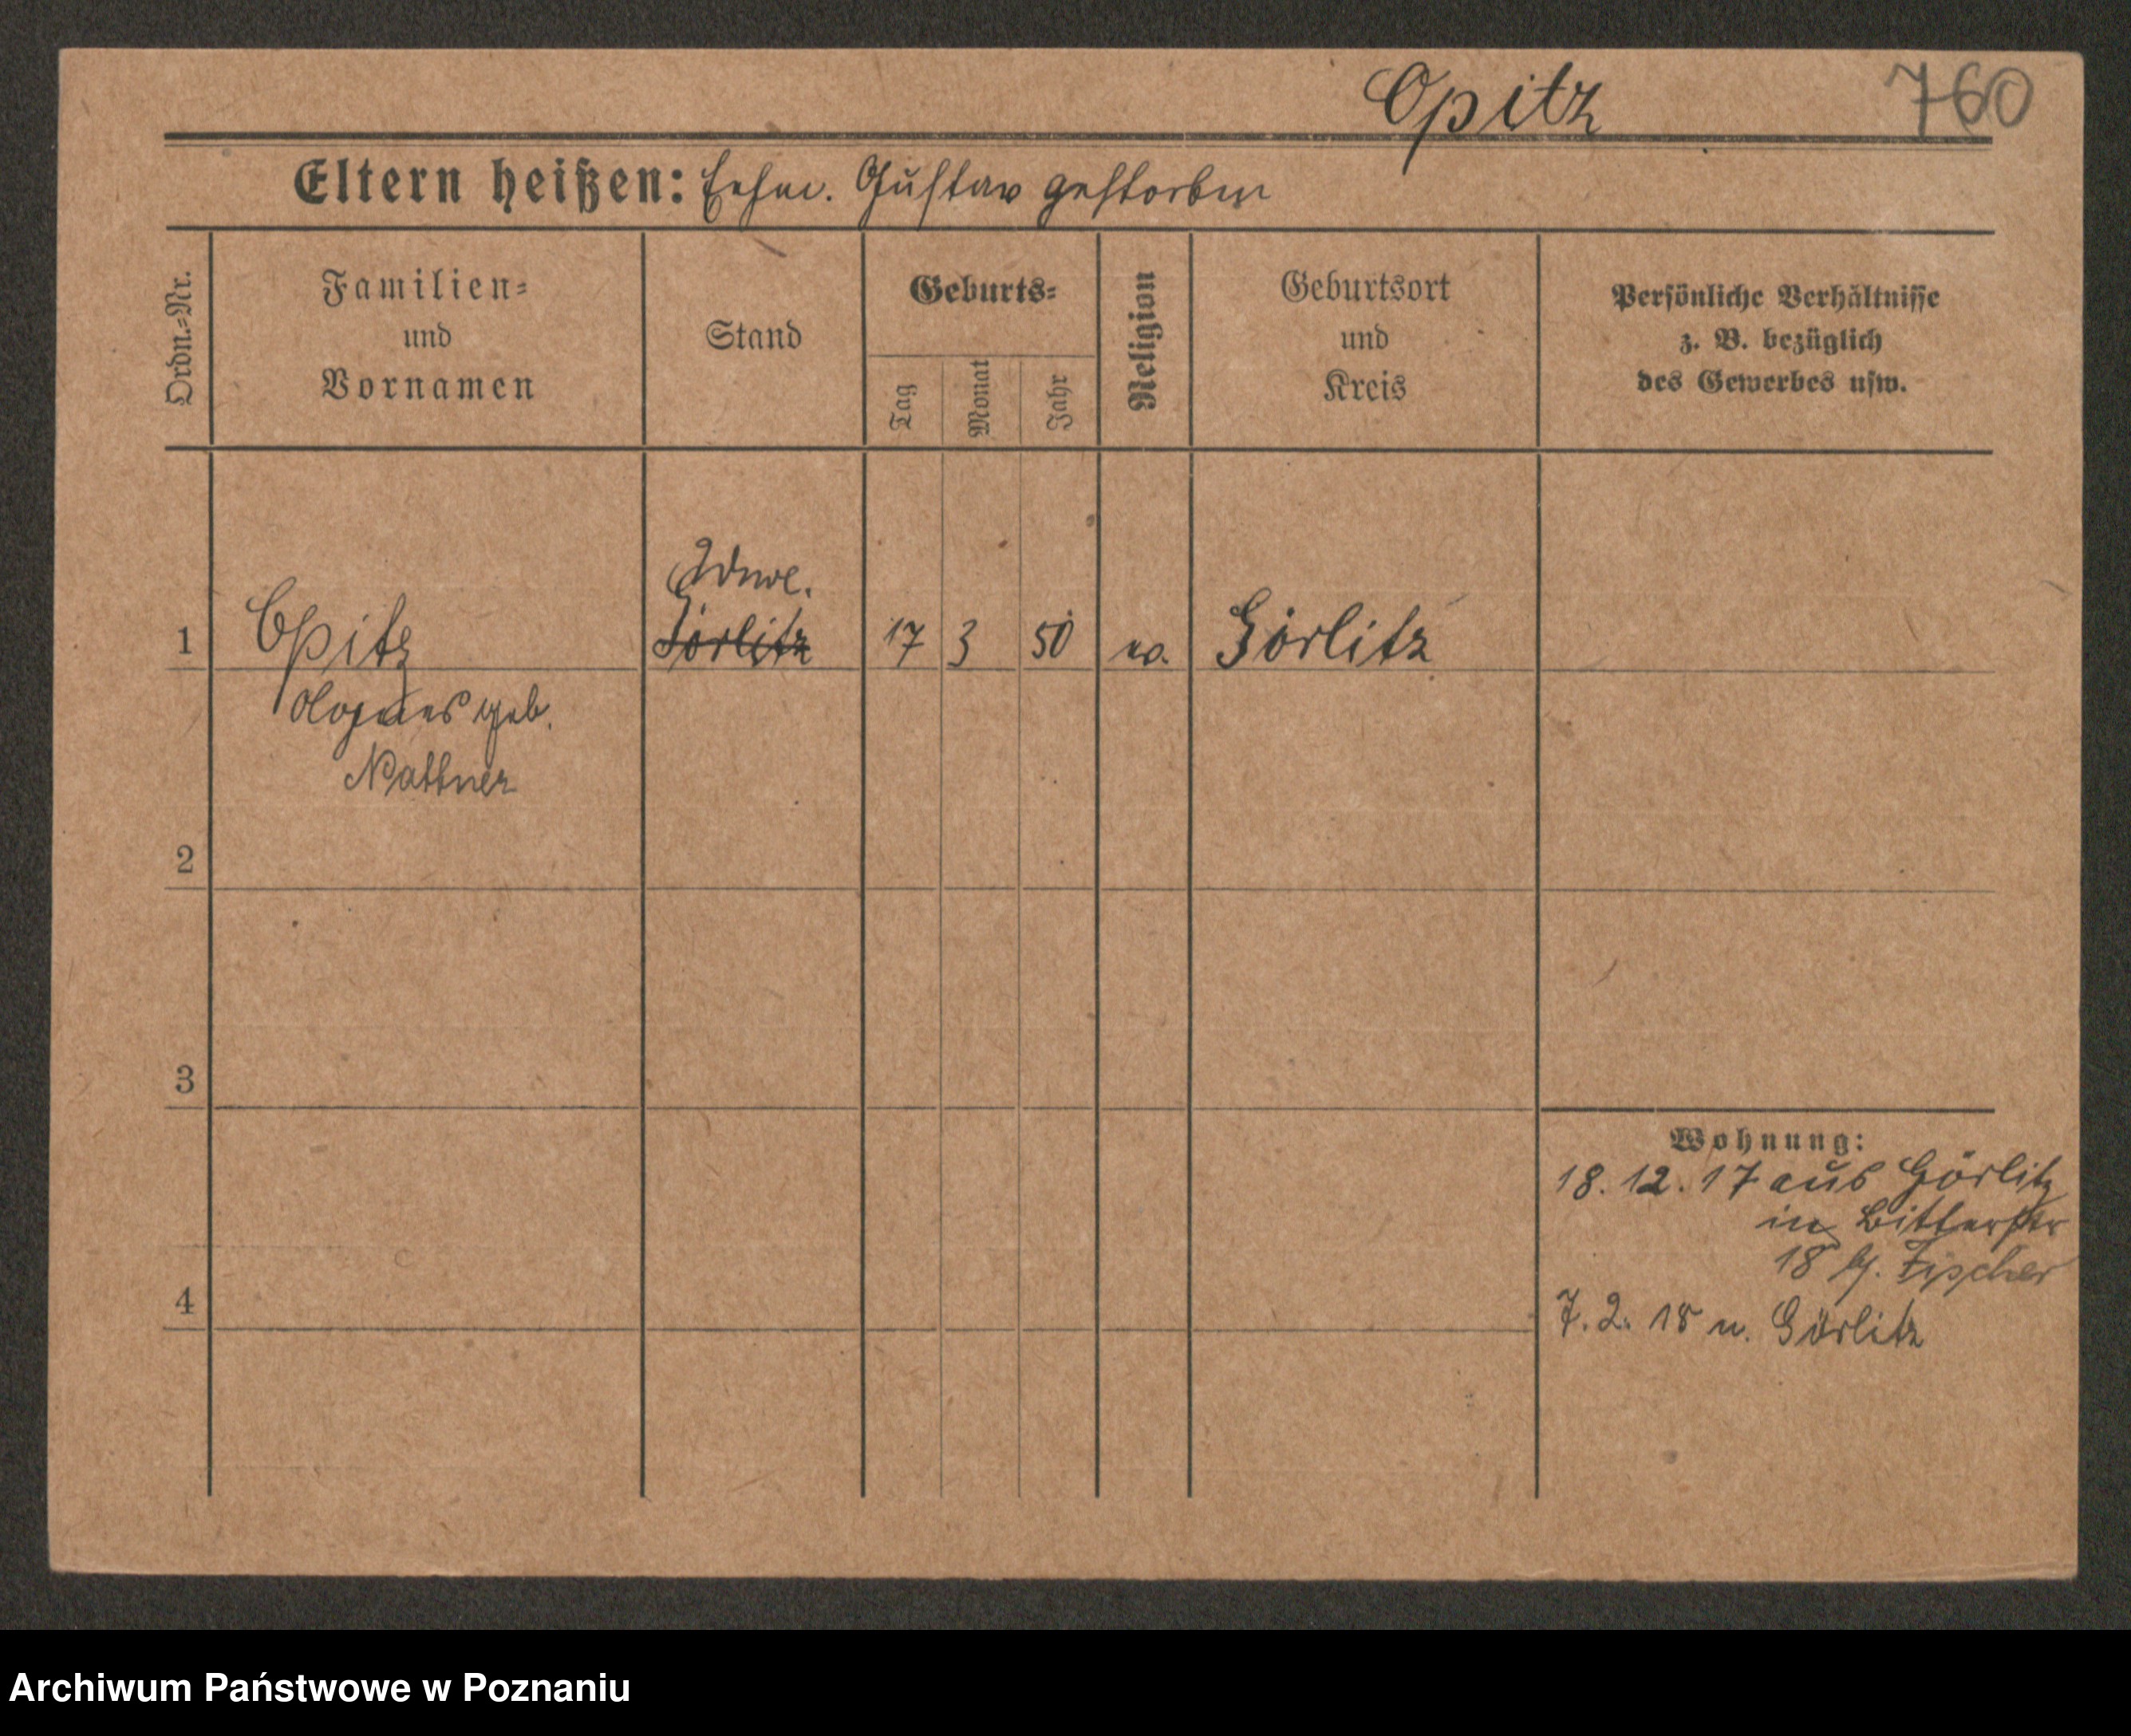 Opitz 760
Eltern heißen: Ehem. Gustav gestorben
Ordn.=Nr.
Familien=
und
Vornamen
Stand
Geburts=
Tag
Monat
Jahr
Religion
Geburtsort
und
Kreis
Persönliche Verhältnisse
z. B. bezüglich
des Gewerbes usw.
Wwe.
1 Opitz Görlitz 17 3 50 ev. Görlitz
Agnes geb.
Nattner
2
3
Wohnung:
18. 12. 17 aus Görlitz
in Bitterstr
18 b/. Fischer
4
7. 2. 18 n. Görlitz
Archiwum Państwowe w Poznaniu